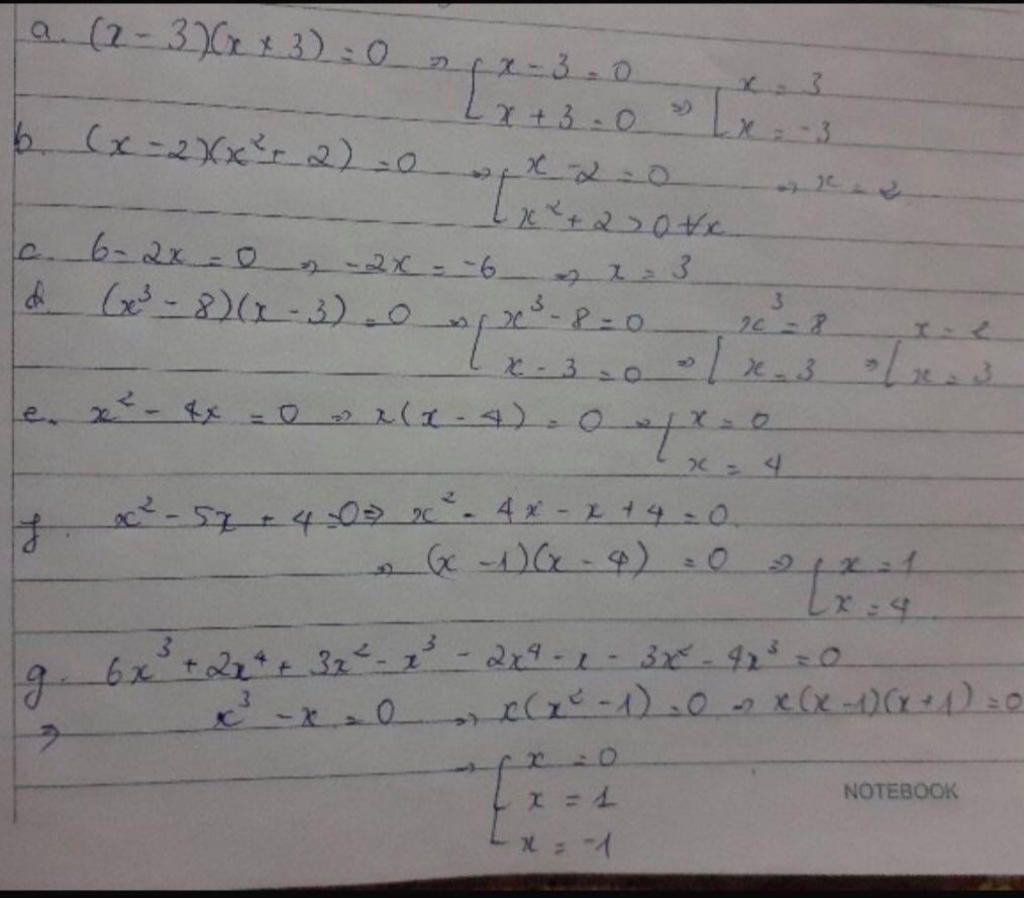 a. (x - 3)(x + 3) = 0 ⇒ [ x - 3 = 0 ; x + 3 = 0 ⇒ [ x = 3 ; x = -3
b. (x - 2)(x² + 2) = 0 ⇒ [ x - 2 = 0 ; x² + 2 > 0 ∀x ⇒ x = 2
c. 6 - 2x = 0 ⇒ -2x = -6 ⇒ x = 3
d. (x³ - 8)(x - 3) = 0 ⇒ [ x³ - 8 = 0 ; x - 3 = 0 ⇒ [ x³ = 8 ; x = 3 ⇒ [ x = 2 ; x = 3
e. x² - 4x = 0 ⇒ x(x - 4) = 0 ⇒ [ x = 0 ; x = 4
f. x² - 5x + 4 = 0 ⇒ x² - 4x - x + 4 = 0
⇒ (x - 1)(x - 4) = 0 ⇒ [ x = 1 ; x = 4
g. 6x³ + 2x⁴ + 3x² - x³ - 2x⁴ - x - 3x² - 4x³ = 0
⇒ x³ - x = 0 ⇒ x(x² - 1) = 0 ⇒ x(x - 1)(x + 1) = 0
⇒ [ x = 0
x = 1
x = -1
NOTEBOOK